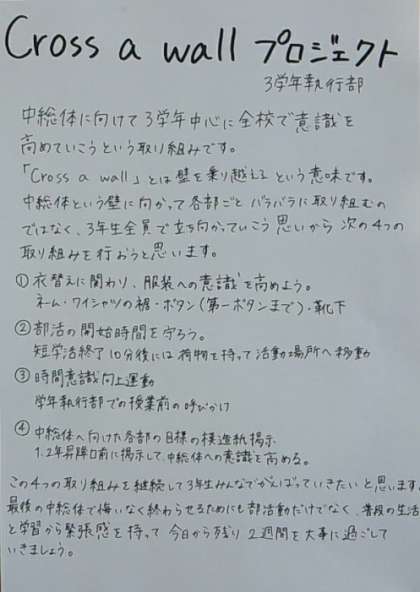 Cross a wall プロジェクト
3学年執行部
中総体に向けて3学年中心に全校で意識を
高めていこうという取り組みです。
「Cross a wall」とは壁を乗り越えるという意味です。
中総体という壁に向かって各部ごとバラバラに取り組むの
ではなく、3年生全員で立ち向かっていこう思いから次の4つの
取り組みを行おうと思います。
①衣替えに関わり、服装への意識を高めよう。
ネーム・ワイシャツの裾・ボタン(第一ボタンまで)・靴下
②部活の開始時間を守ろう。
短学活終了10分後には荷物を持って活動場所へ移動
③時間意識向上運動
学年執行部での授業前の呼びかけ
④中総体へ向けた各部の目標の模造紙掲示
1.2年昇降口前に掲示して、中総体への意識を高める。
この4つの取り組みを継続して3年生みんなでがんばっていきたいと思います。
最後の中総体で悔いなく終わらせるためにも部活動だけでなく、普段の生活
と学習から緊張感を持って今日から残り2週間を大事に過ごして
いきましょう。